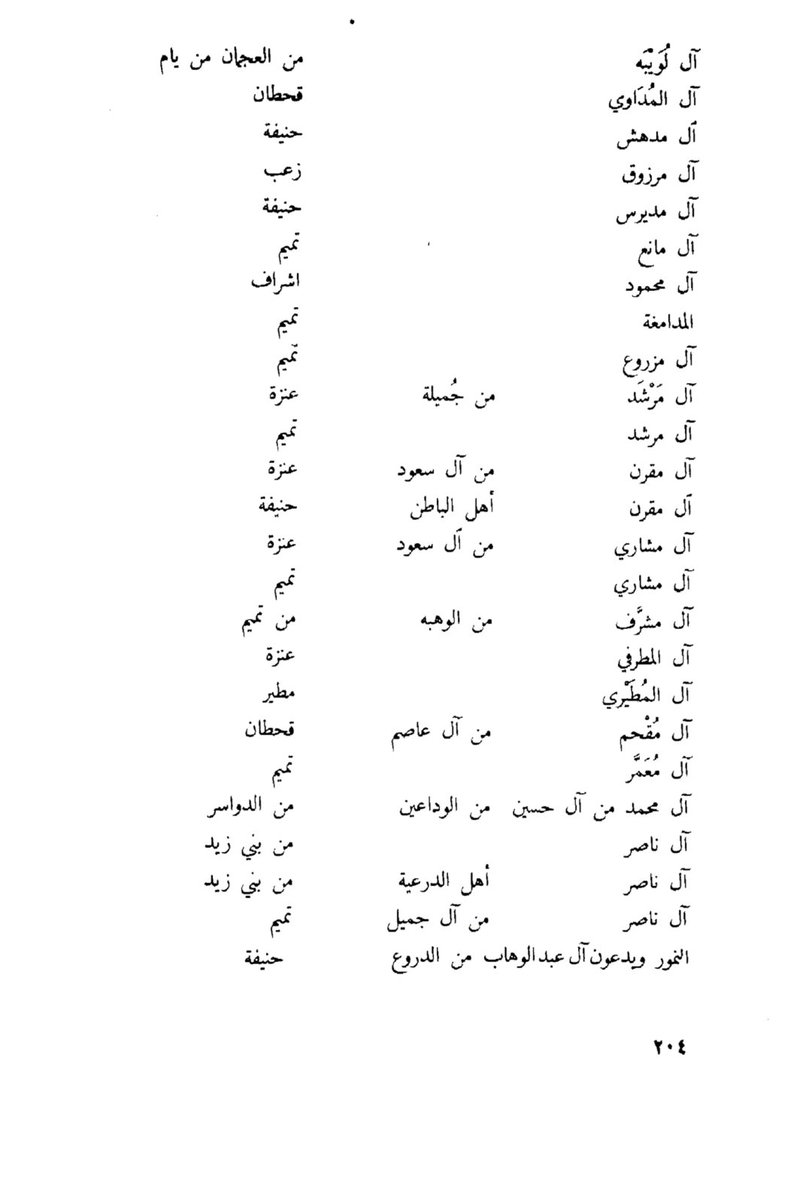 آل لُوَيْبَه من العجمان من يام
آل المُدَاوي قحطان
آل مدهش حنيفة
آل مرزوق زعب
آل مديرس حنيفة
آل مانع تميم
آل محمود اشراف
المدامغة تميم
آل مزروع تميم
آل مَرْشَد من جُميلة عنزة
آل مرشد تميم
آل مقرن من آل سعود عنزة
آل مقرن أهل الباطن حنيفة
آل مشاري من آل سعود عنزة
آل مشاري تميم
آل مشرَّف من الوهبه من تميم
آل المطرفي عنزة
آل المُطَيْري مطير
آل مُقْحم من آل عاصم قحطان
آل مُعَمَّر تميم
آل محمد من آل حسين من الوداعين من الدواسر
آل ناصر من بني زيد
آل ناصر أهل الدرعية من بني زيد
آل ناصر من آل جميل تميم
النمور ويدعون آل عبدالوهاب من الدروع حنيفة
٢٠٤